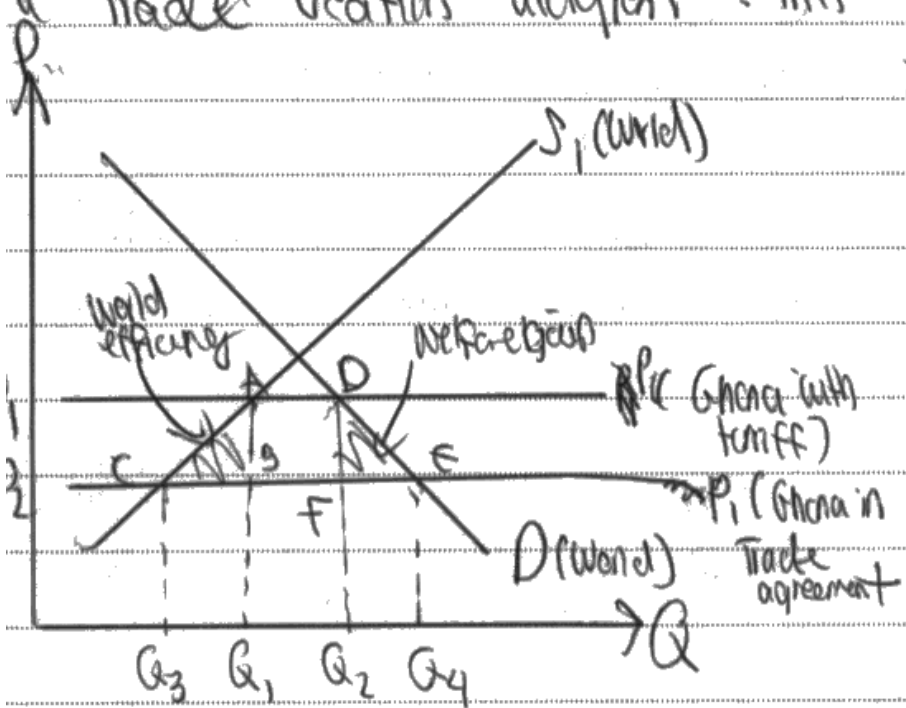 a Trade creation diagram this
P
S, (World)
World
efficiency
welfare gain
A
D
1
P( Ghana with
tariff)
C
B
E
2
F
P, ( Ghana in
Trade
agreement
D (World)
Q
Q3
Q1
Q2
Q4